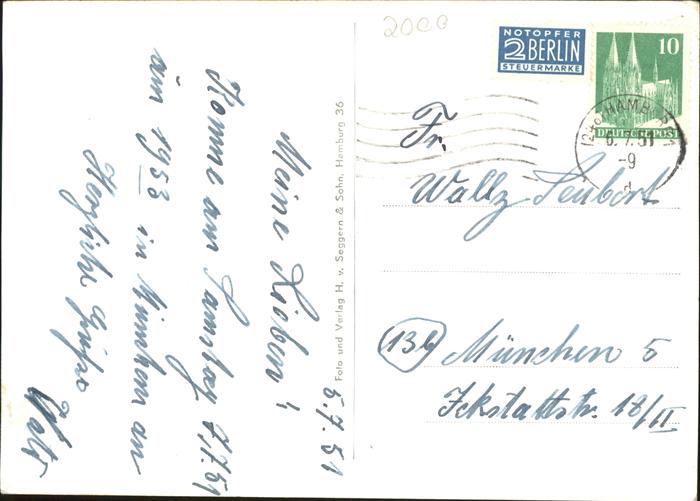 5.7.51
Meine Lieben!
Komme am Samstag 7.7.51
um 1953 in München an
Herzliche Grüße
Foto und Verlag H. v. Seggern & Sohn, Hamburg 36
2000
NOTOPFER
2 BERLIN
STEUERMARKE
10
DEUTSCHE POST
HAMBURG 1
6.7.51
-9
Fr.
Wally Seubert
(13b) München 5
Ickstattstr. 18/II